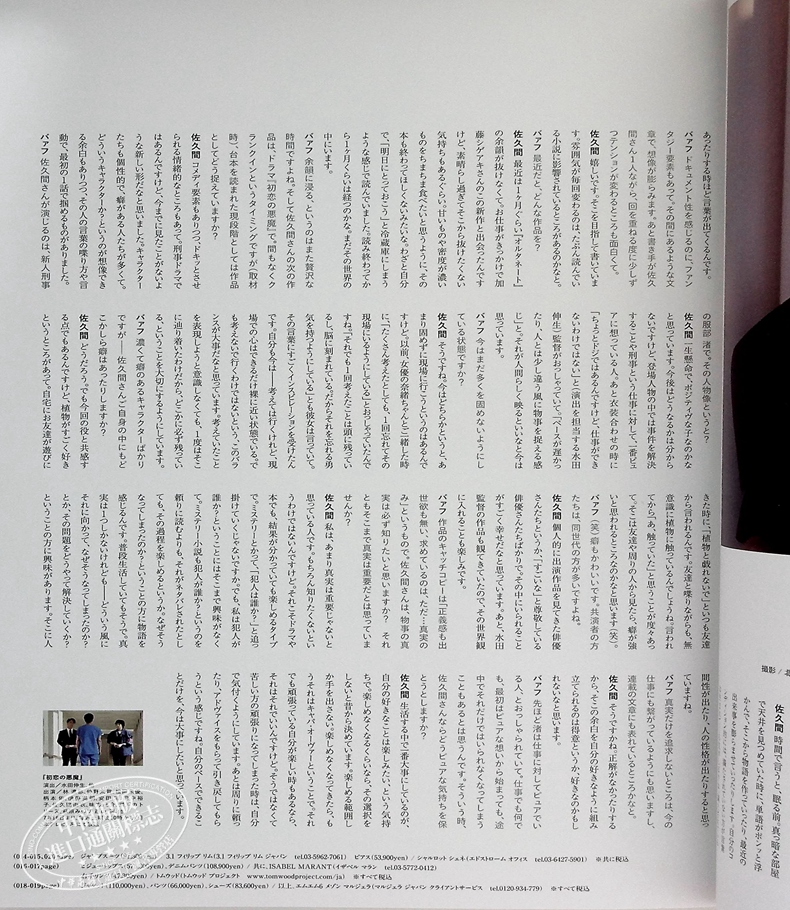 あったりする時ほど言葉が出てくるんです。
バァフ ドキュメント性を感じるのに、ファン
タジー要素もあって。その間にあるような文
章で、想像が膨らみます。あと書き手が佐久
間さん1人ながら、回を重ねる度に少しず
つテンションが変わるところも面白くて。
佐久間 嬉しいです。そこを目指して書いていま
す。雰囲気が毎回変わるのは、たぶん読んでい
る小説に影響されているところがあるのかなと。
バァフ 最近だと、どんな作品を?
佐久間 最近は1ヶ月ぐらい『オルタネート』
の余韻が抜けなくて。お仕事がきっかけで加
藤シゲアキさんのこの新作と出会ったんです
けど、素晴らし過ぎてそこから抜けたくない
気持ちもあるぐらい。甘いものや密度が濃い
ものをちまちま食べたいと思うように、その
本も終わってほしくないみたいな。わざと自分
で、「明日にとっておこう」と冷蔵庫にしまう
ような感じで読んでいました。読み終わってか
ら1ヶ月くらいは経つのかな。まだその世界の
中にいます。
バァフ 余韻に浸る、というのはまた贅沢な
時間ですよね。そして佐久間さんの次の作
品は、ドラマ『初恋の悪魔』で。間もなくク
ランクインというタイミングですが（取材
時）、台本を読まれた現段階としては作品
としてどう捉えていますか?
佐久間 コメディ要素もありつつ、ドキッとさせ
られる情緒的なところもあって。刑事ドラマで
はあるんですけど、今までに見たことがないよ
うな新しい形だなと思いました。キャラクター
たちも個性的で、癖がある人たちが多くて。
どういうキャラクターか?というのが想像でき
る余白もありつつ、その人の言葉の喋り方や言
動で、最初の1話で掴めるものがありました。
バァフ 佐久間さんが演じるのは、新人刑事
の服部 渚で。その人物像というと?
佐久間 一生懸命で、ポジティブな子なのかな
と思っています。今後はどうなるかは分から
ないですけど、登場人物の中では事件を解決
することや刑事という仕事に対して、一番ピュ
アに想っている人。あと衣装合わせの時に
「ちょっとドジではあるんですけど、仕事ができ
ないわけではない」と演出を担当する水田
（伸生）監督がおっしゃっていて。「ペースが遅かっ
たり、人とは少し違う風に物事を捉える感
じ」と。それが人間らしく映るといいなと今は
思っています。
バァフ 今はまだ多くを固めないようにし
ている状態ですか?
佐久間 そうですね。今はどちらかというと、あ
まり固めずに現場に行こうというのはあるんで
すけど。以前、女優の奈緒ちゃんとご一緒した時
に、「たくさん考えたとしても、1回忘れてその
現場にいるようにしている」とおっしゃっていたんで
すね。「それでも1回考えたことは頭に残ってい
るし、脳に刻まれている。だからそれを忘れる勇
気を持つようにしている」とも彼女は言っていて。
その言葉にすごくインスピレーションを受けたん
です。自分も今は――考えては行くけれど、現
場での心はできるだけ裸に近い状態でいる。で
も考えないで行くわけではないという、このバラ
ンスが大事だなと思っています。考えていたこと
を表現しようと意識しなくても、1度はそこ
に辿り着いたわけだから、どこかに必ず残ってい
る、ということを大切にするようにしています。
バァフ 濃くて癖のあるキャラクターばかり
ですが――佐久間さんご自身の中にもど
こかしら癖はあったりしますか?
佐久間 どうだろう。でも今回の役と共感す
る点でもあるんですけど、植物がすごく好き
というところがあって。自宅にお友達が遊びに
きた時に、「植物と戯れないで」といつも友達
から言われるんです。友達と喋りながらも、無
意識に植物に触っているんでしょうね。言われ
てから「あ、触っていた」と思うことが度々あっ
て。そこは友達や周りの人から見たら、癖が強
いと思われるところなのかなと思います（笑）。
バァフ （笑）癖もかわいいです。共演者の方
たちは、同世代の方が多いですよね。
佐久間 個人的に出演作品を見てきた俳優
さんたちというか、「すごいな」と尊敬している
俳優さんたちばかりで。その中にいられること
がすごく幸せだなと思っています。あと、水田
監督の作品も観てきていたので、その世界観
に入れることも楽しみです。
バァフ 作品のキャッチコピーは「正義感も出
世欲も無い、求めているのは、ただ…真実の
み」というもので。佐久間さんは、物事の真
実は必ず知りたいと思いますか? それ
ともそこまで真実は重要だとは思っていま
せんか?
佐久間 私は、あまり真実は重要じゃないと
思っている人です。もちろん知りたくないとい
うわけではないんですけど。それこそドラマや
本でも、結果が分かっていても楽しめるタイプ
で。ミステリーとかって、「犯人は誰か?」と追っ
掛けていくじゃないですか。でも、私は犯人が
誰か?ということにはそこまで興味がなく
て。ミステリー小説も犯人が誰か?というのを
頼りに読むよりも、それがネタバレされたとし
ても、その過程を楽しめるというか。なぜそう
なってしまったのか?ということの方に物語を
感じるんです。普段生活していてもそうで。真
実は1つしかないけれども――どういう風に
それに向かって、なぜそうなってしまったのか?
とか、その問題をどうやって解決していくか?
ということの方に興味があります。そこに人
間性が出たり、人の性格が出たりすると思っ
ていますね。
バァフ 真実だけを追求しないところは、今の
仕事にも繋がっているようにも思いますし、
連載の文章にも表れているところかなと。
佐久間 そうですかね。正解がなかったりする
から、そこの余白を自分の好きなように組み
立てられるのは得意というか、好きなのかもし
れないなと思います。
バァフ 先ほど渚は仕事に対してピュアでい
る人、とおっしゃられていて。仕事でも何で
も、最初はピュアな想いから始まっても、途
中でそれだけではいられなくなってしまう
こともあるとは思うんです。そういう時、
佐久間さんならどうピュアな気持ちを保
とうとしますか?
佐久間 生活する中で一番大事にしているのが、
自分の好きなことは楽しみたい、という気持
ちで。楽しめなくなるくらいなら、その選択を
しないと昔から決めています。楽しめる範囲し
か手を出さない。楽しめなくなってきたら、も
うそれはキャパオーバーということで。それ
でも頑張っている自分が楽しい時もあるなら、
それはそれでいいんですけど。そうではなくて
苦しい方の頑張りになってしまった時は、自分
で気付くようにしています。あとは周りに頼っ
たり、アドヴァイスをもらって引き戻してもら
うという感じですね。「自分のペースでできるこ
とだけを」今は大事にしたいと思っています。
『初恋の悪魔』
演出／水田伸生
撮影／北
佐久間 時間で言うと、眠る前。真っ暗な部屋
で天井を見つめていた時に、単語がポンッと浮
かんで、そこから物語を作っていったり、最近の
(014-015,020page)
(3.1 フィリップ リム ジャパン tel.03-5962-7061) ピアス(53,900yen)／シャルロット シェネ(エドストローム オフィス tel.03-6427-5901) ※共に税込
(016-017page)
デニムパンツ(108,900yen)／共に、ISABEL MARANT(イザベル マラン tel.03-5772-0412)
トムウッド(トムウッド プロジェクト www.tomwoodproject.com/ja) ※すべて税込
(018-019page)
(110,000yen)、パンツ(66,000yen)、シューズ(83,600yen)／以上、エムエム6 メゾン マルジェラ(マルジェラ ジャパン クライアントサービス tel.0120-934-779) ※すべて税込
進口通關標志